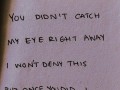 YOU DIDN'T CATCH
MY EYE RIGHT AWAY
I WON'T DENY THIS
BUT ONCE YOU DID